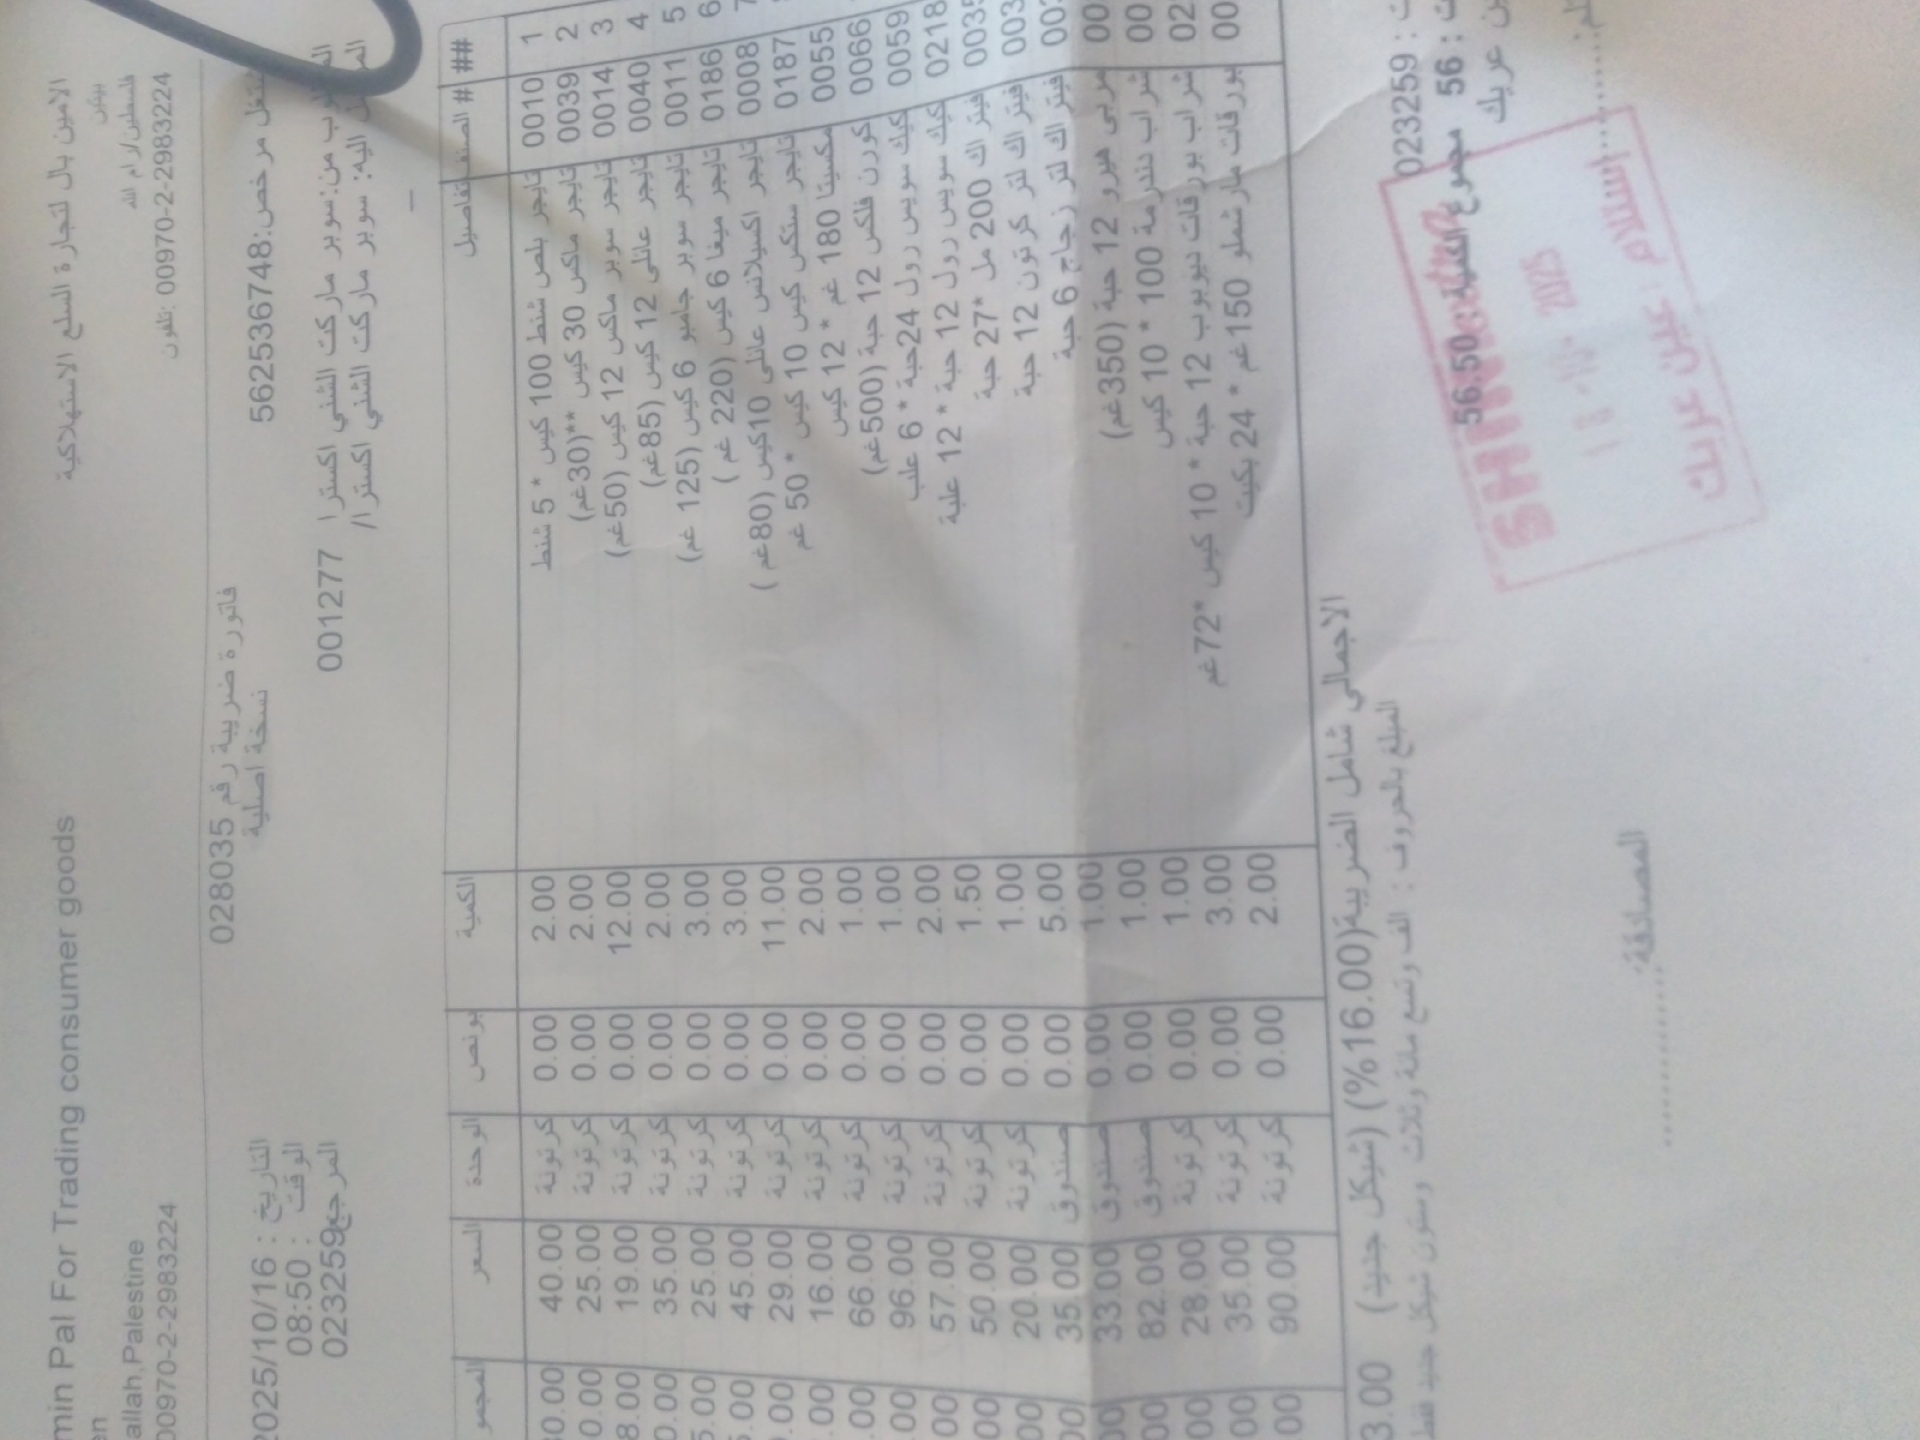 الامين بال لتجارة السلع الاستهلاكية
min Pal For Trading consumer goods
بيتين
en
فلسطين/رام الله
allah,Palestine
تلفون: 00970-2-2983224
00970-2-2983224
مشتغل مرخص:562536748
فاتورة ضريبية رقم 028035
نسخة اصلية
التاريخ : 2025/10/16
الوقت : 08:50
المرجع023259
المطلوب من:سوبر ماركت الشني اكسترا 001277
اليه: سوبر ماركت الشني اكسترا/
## # الصنف التفاصيل الكمية بونص الوحدة السعر المجمو
1 0010 تايجر بلص شنط 100 كيس * 5 شنط 2.00 0.00 كرتونة 40.00 0.00
2 0039 تايجر ماكس 30 كيس **(30غم) 2.00 0.00 كرتونة 25.00 0.00
3 0014 تايجر سوبر ماكس 12 كيس (50غم) 12.00 0.00 كرتونة 19.00 8.00
4 0040 تايجر عائلي 12 كيس (85غم) 2.00 0.00 كرتونة 35.00 0.00
5 0011 تايجر سوبر جامبو 6 كيس (125 غم) 3.00 0.00 كرتونة 25.00 5.00
6 0186 تايجر ميغا 6 كيس (220 غم ) 3.00 0.00 كرتونة 45.00 5.00
7 0008 تايجر اكسيلانس عائلي 10كيس (80غم ) 11.00 0.00 كرتونة 29.00 .00
0187 تايجر ستكس كيس 10 كيس * 50 غم 2.00 0.00 كرتونة 16.00 .00
0055 مكسيتا 180 غم * 12 كيس 1.00 0.00 كرتونة 66.00 .00
0066 كورن فلكس 12 حبة (500غم) 1.00 0.00 كرتونة 96.00 .00
0059 كيك سويس رول 24حبة * 6 علب 2.00 0.00 كرتونة 57.00 00
0218 كيك سويس رول 12 حبة * 12 علبة 1.50 0.00 كرتونة 50.00 00
003 فيتراك 200 مل *27 حبة 1.00 0.00 كرتونة 20.00 00
003 فيتراك لتر كرتون 12 حبة 5.00 0.00 صندوق 35.00 00
00 فيتراك لتر زجاج 6 حبة 1.00 0.00 صندوق 33.00 00
00 مربى هيرو 12 حبة (350غم) 1.00 0.00 صندوق 82.00 00
00 شراب تندرمة 100 * 10 كيس 1.00 0.00 كرتونة 28.00 00
02 شراب بورقات تيوب 12 حبة * 10 كيس *72غم 3.00 0.00 كرتونة 35.00 00
00 بورقات مارشملو 150غم * 24 بكيت 2.00 0.00 كرتونة 90.00 00
الاجمالي شامل الضريبة(16.00%) (شيكل جديد) 3.00
المبلغ بالحروف : الف وتسع مائة وثلاث وستون شيكل جديد فقط
023259
56 مجموع الكمية: 56.50
ين عريك
SHINI
2025
استلام : عين عريك
المصادقة: